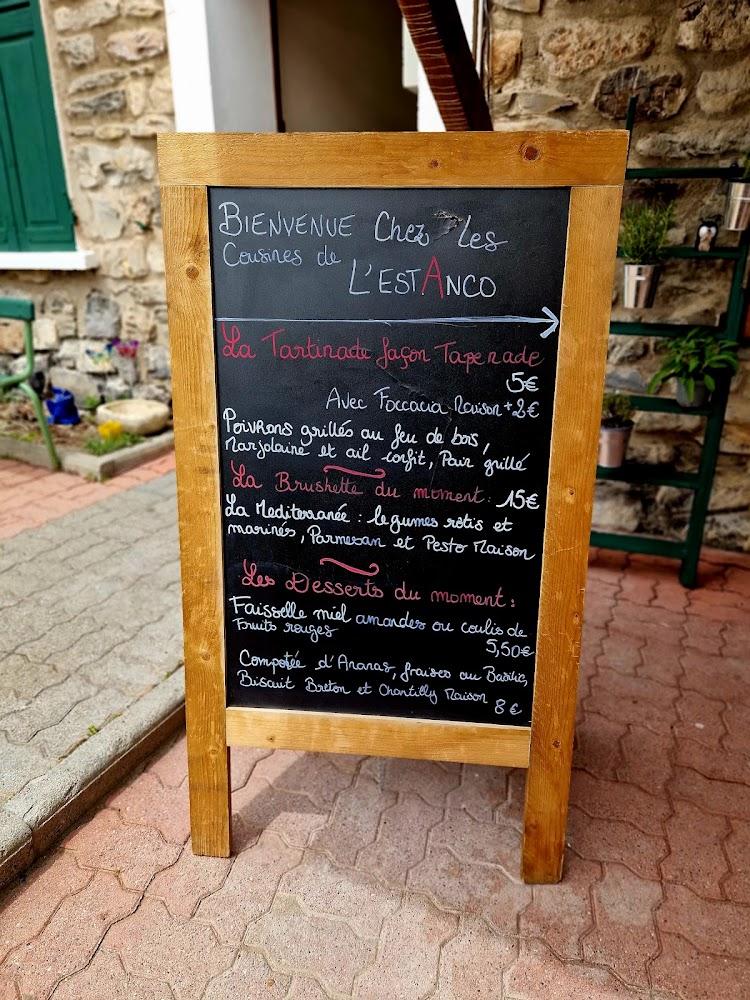 BIENVENUE Chez les
Cousines de
L'ESTANCO
La Tartinade façon Tapenade
5€
Avec Foccacia Maison +2€
Poivrons grillés au feu de bois,
Marjolaine et ail confit, Pain grillé
La Brushette du moment: 15€
La Mediterranée : legumes rôtis et
marinés, Parmesan et Pesto Maison
Les Desserts du moment :
Faisselle miel amandes ou coulis de
Fruits rouges
5,50€
Compotée d'Ananas, fraises au Basilic,
Biscuit Breton et Chantilly Maison
8€